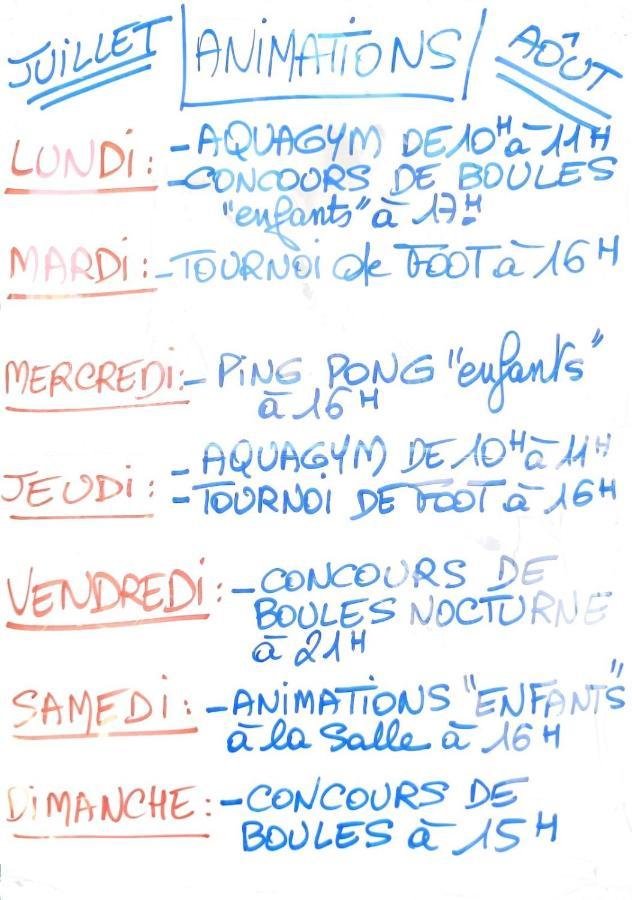 JUILLET ANIMATIONS AOÛT
LUNDI : - AQUAGYM DE 10H à 11H
- CONCOURS DE BOULES
"enfants" à 17H
MARDI : - TOURNOI de FOOT à 16H
MERCREDI : - PING PONG "enfants"
à 16H
JEUDI : - AQUAGYM DE 10H à 11H
- TOURNOI DE FOOT à 16H
VENDREDI : - CONCOURS DE
BOULES NOCTURNE
à 21H
SAMEDI : - ANIMATIONS "ENFANTS"
à la Salle à 16H
DIMANCHE : - CONCOURS DE
BOULES à 15H